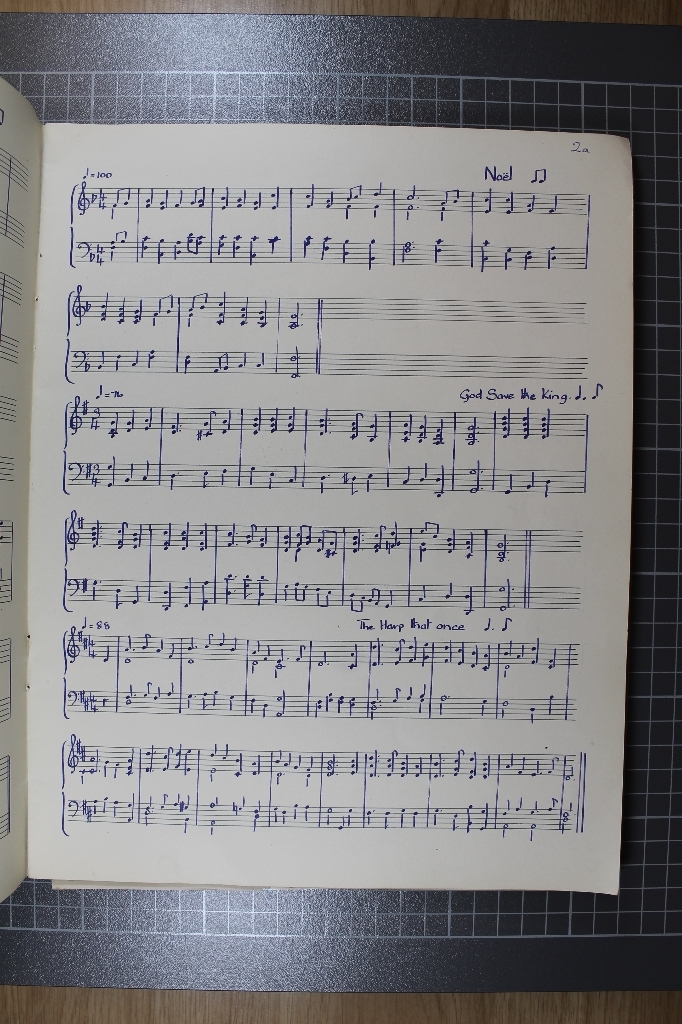 2a
♩=100 Noël ♫
4
4
4
4
♩=76 God Save the King. ♩. ♪
3
4
3
4
♩=88 The Harp that once ♩. ♪